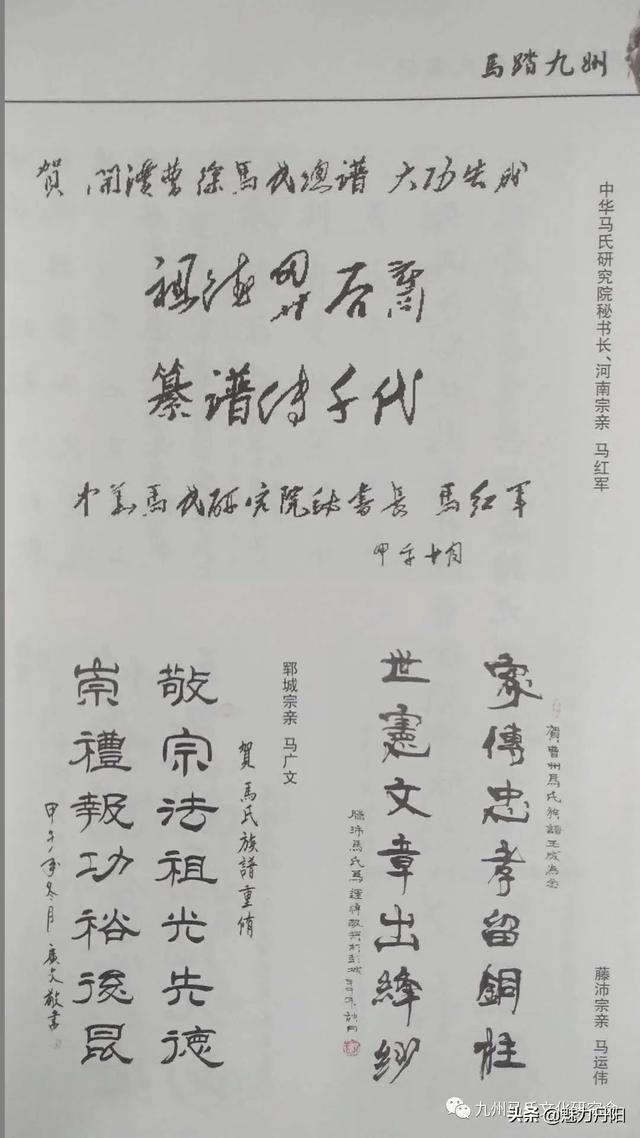 馬踏九州
賀 開濮曹徐馬氏總谱 大功告成
祖德昇百裔
纂谱传千代
中华馬氏研究院秘書長 馬红军
甲午十月
中华马氏研究院秘书长、河南宗亲 马红军
家傳忠孝留銅柱
世憲文章出絳紗
賀曹州馬氏族譜玉成為念
滕沛宗亲 马运伟
郓城宗亲 马广文
賀 馬氏族譜重脩
敬宗法祖光先德
崇禮報功裕後昆
甲午年冬月 廣文敬書
九州马氏文化研究会
头条 @魅力丹阳